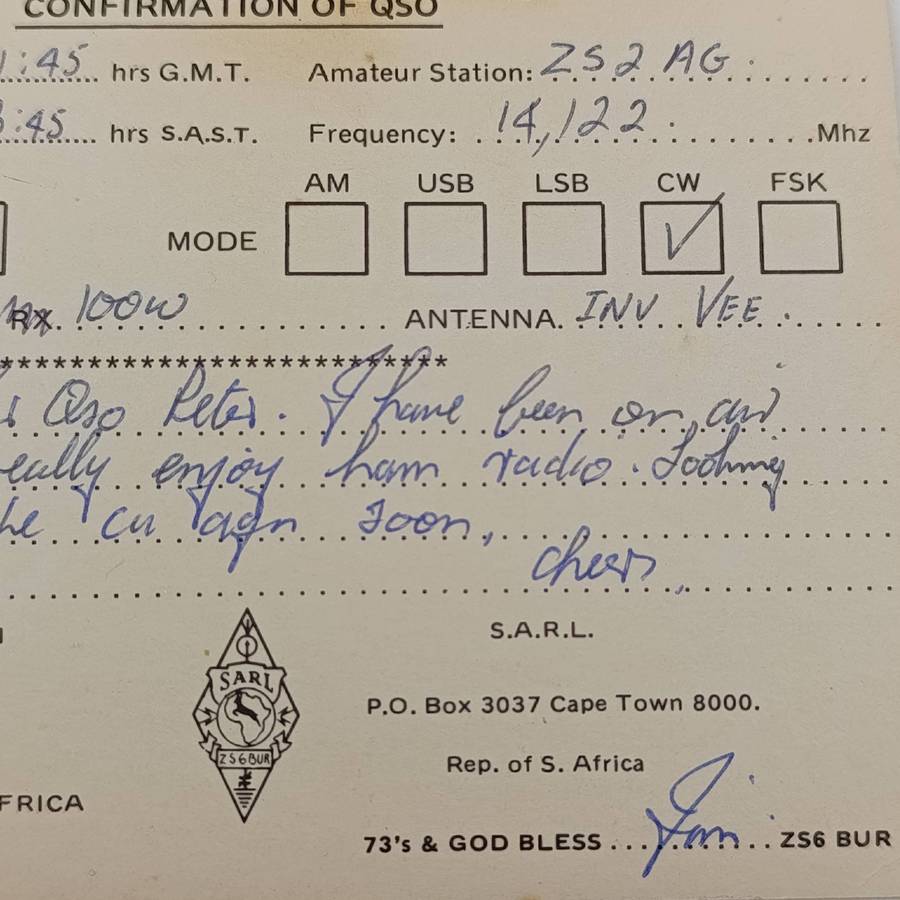 CONFIRMATION OF QSO
:45 hrs G.M.T. Amateur Station: ZS2 AG
:45 hrs S.A.S.T. Frequency: 14,122 Mhz
AM USB LSB CW FSK
MODE ✓
RX 100W ANTENNA. INV VEE.
****************************
QSO Peter. I have been on air
eally enjoy ham radio. Looking
cu agn soon,
cheers
S.A.R.L.
SARL
P.O. Box 3037 Cape Town 8000.
ZS6BUR
Rep. of S. Africa
FRICA
73's & GOD BLESS ... ZS6 BUR